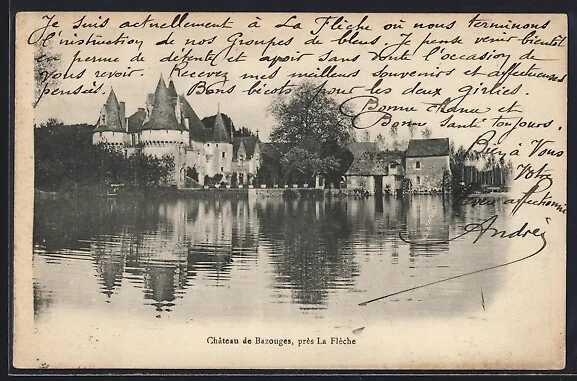 Je suis actuellement à La Flèche où nous terminons
l'instruction de nos Groupes de bleus. Je pense venir bientôt
en perme de détente et avoir sans doute l'occasion de
vous revoir. Recevez mes meilleurs souvenirs et affectueuses
pensées. Bons bécots pour les deux girlies.
Bonne chance et
Bonne santé toujours.
Bien à Vous
Votre
affectionné
André
Château de Bazouges, près La Flèche